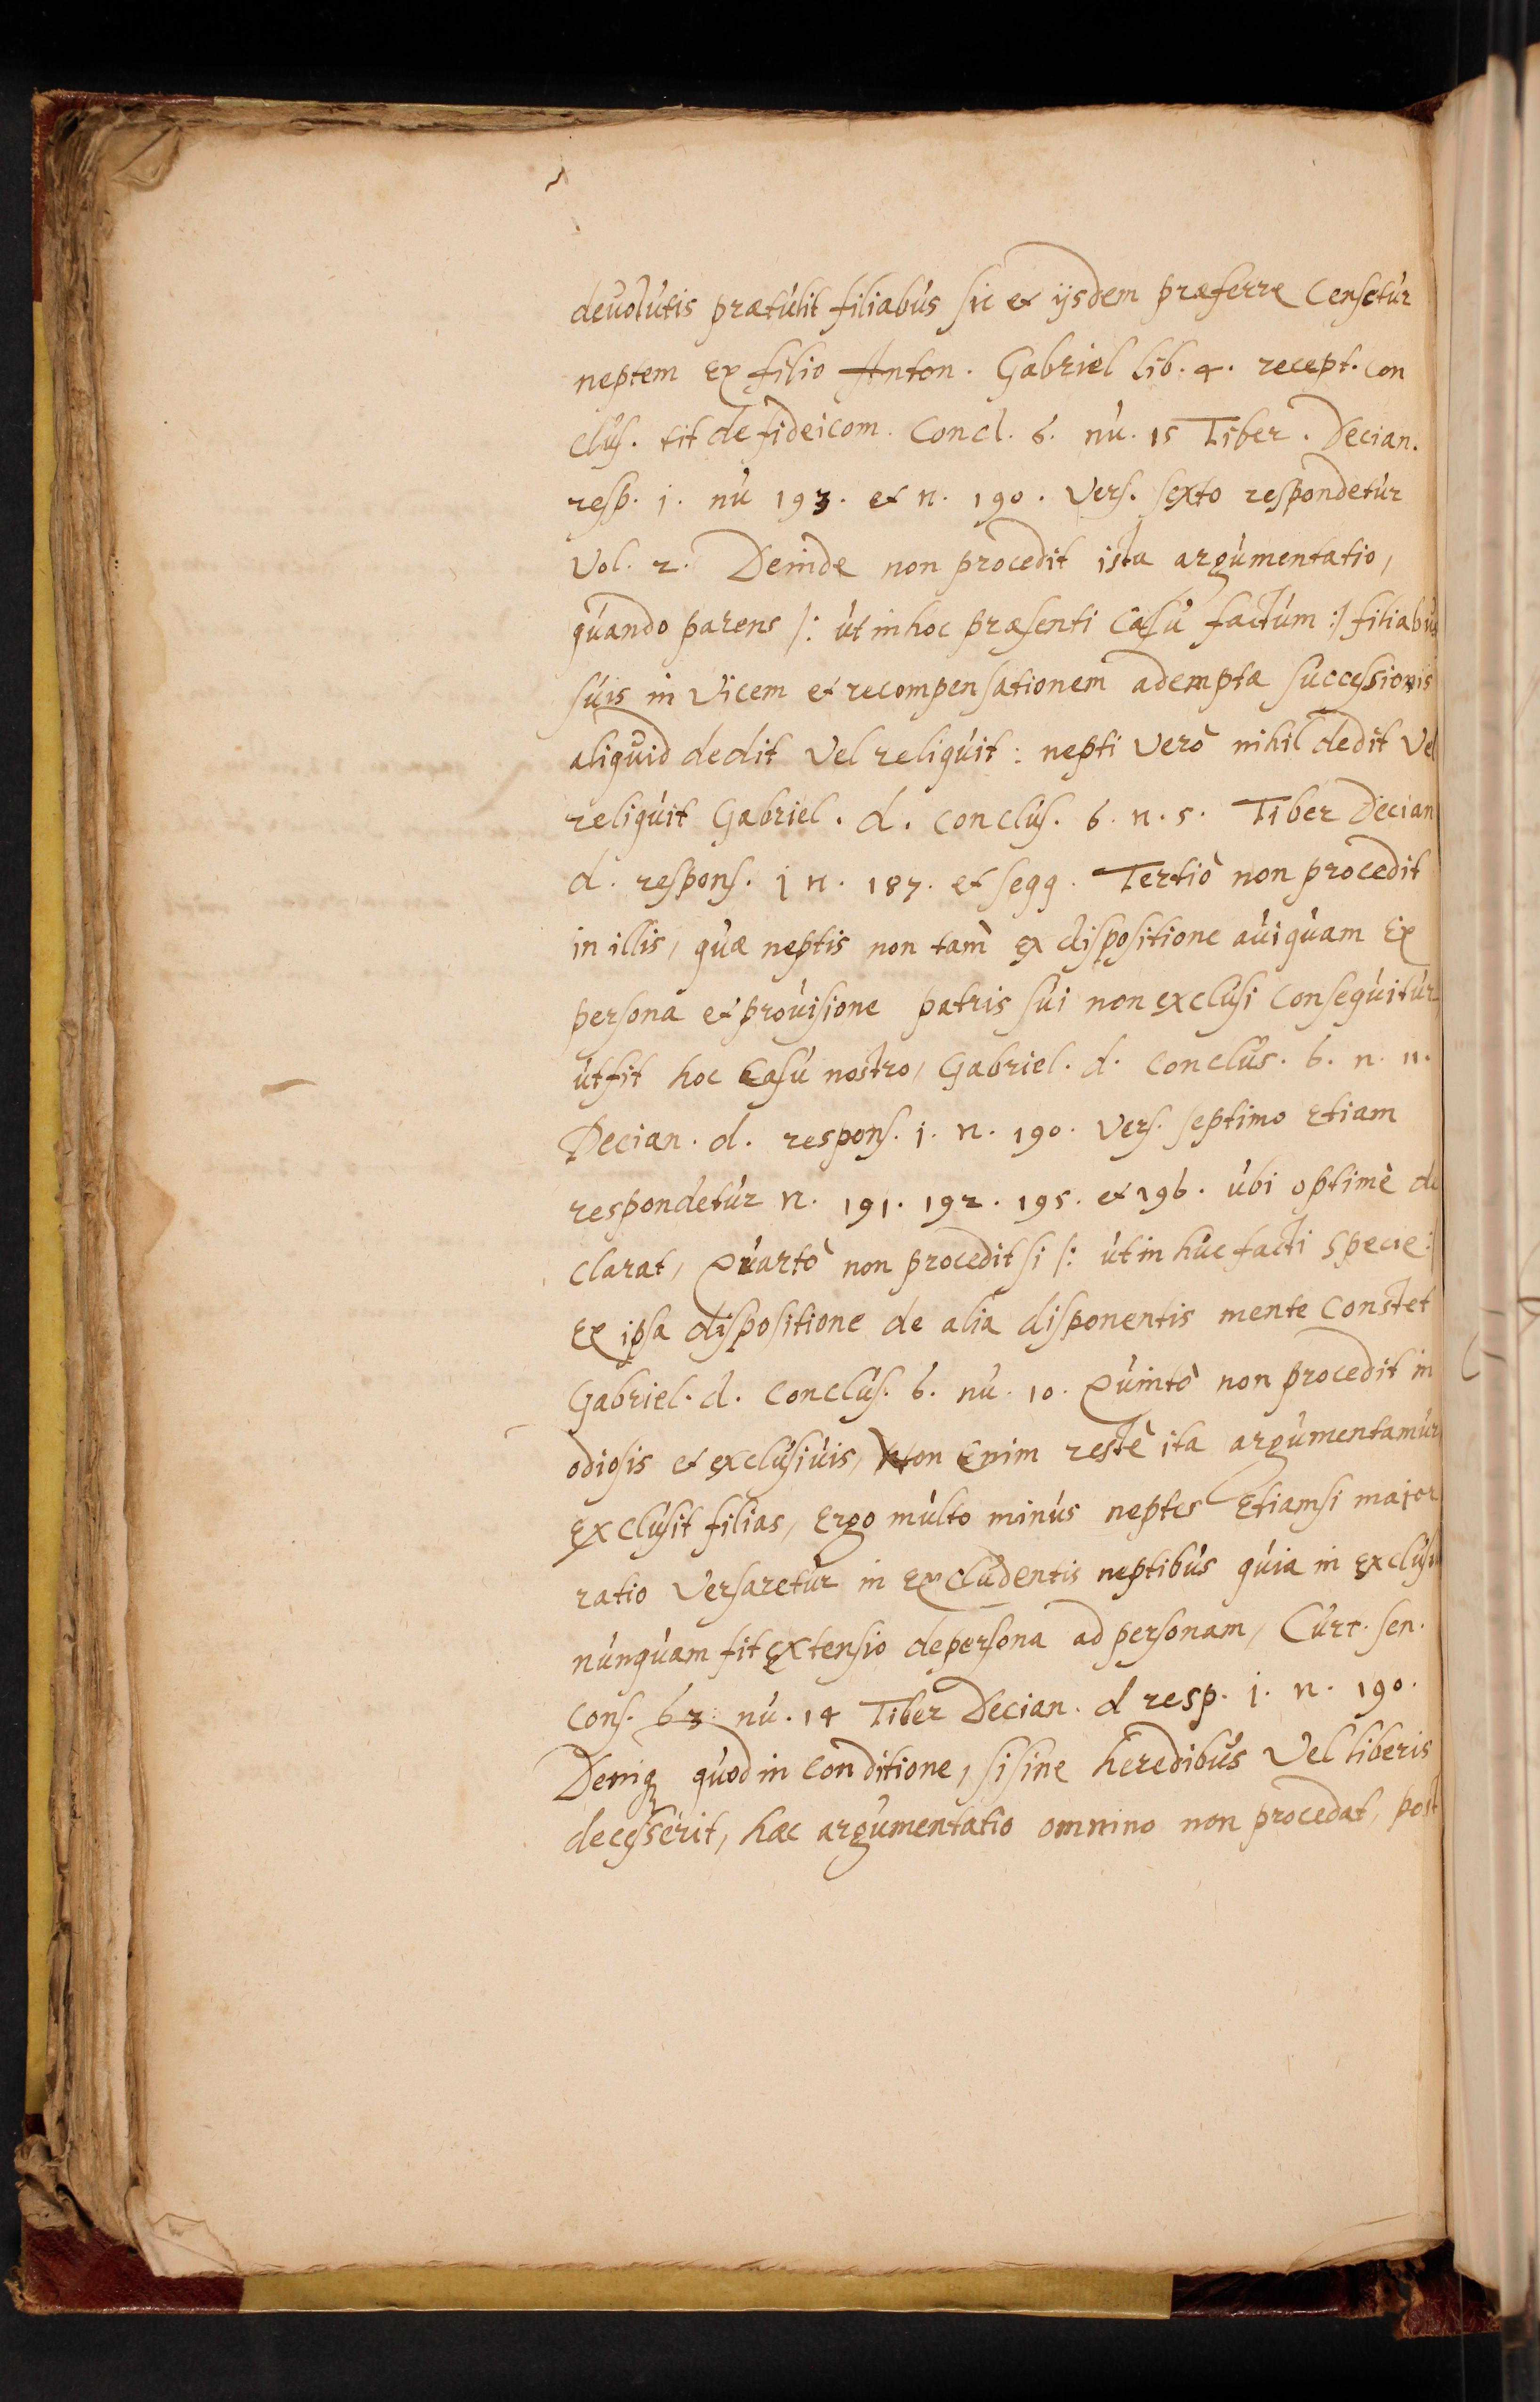 devolutis prætulit filiabus sic et ijsdem præferre Censetur
neptem ex filio Anton. Gabriel lib. 4. recept. con
clus. tit de fideicom. Concl. 6. nu. 15 Tiber. Decian.
resp. j. nu 193. et n. 190. Vers. sexto respondetur
Vol. 2. Deinde non procedit ista argumentatio,
quando parens /: ut in hoc præsenti Casu factum :/ filiabus
suis in Vicem et recompensationem ademptæ successionis
aliquid dedit Vel reliquit : nepti verò nihil dedit Vel
reliquit Gabriel. d. conclus. 6. n. 5. Tiber Decian
d. respons. j n. 187. et seqq. Tertiò non procedit
in illis, quæ neptis non tam ex dispositione avi quam Ex
persona et provisione patris sui non exclusi Consequitur
ut fit hoc Casu nostro, Gabriel. d. Conclus. 6. n. 11.
Decian. d. respons. j. n. 190. Vers. septimo Etiam
respondetur n. 191. 192. 195. et 196. ubi optimè de
clarat, Quartò non procedit si /: ut in huc facti specie :/
Ex ipsa dispositione de alia disponentis mente Constet
Gabriel. d. Conclus. 6. nu. 10. Quintò non procedit in
odiosis et exclusivis, Non Enim restè ita argumentamur
Exclusit filias, Ergo multo minus neptes Etiamsi major
ratio Versaretur in Excludentis neptibus quia in exclusu
nunquam fit Extensio de persona ad personam, Curt. sen.
Cons. 63. nu. 14 Tiber Decian. d resp. j. n. 190.
Deniq quod in Conditione, si sine heredibus Vel liberis
decesserit, hæc argumentatio omnino non procedat, post